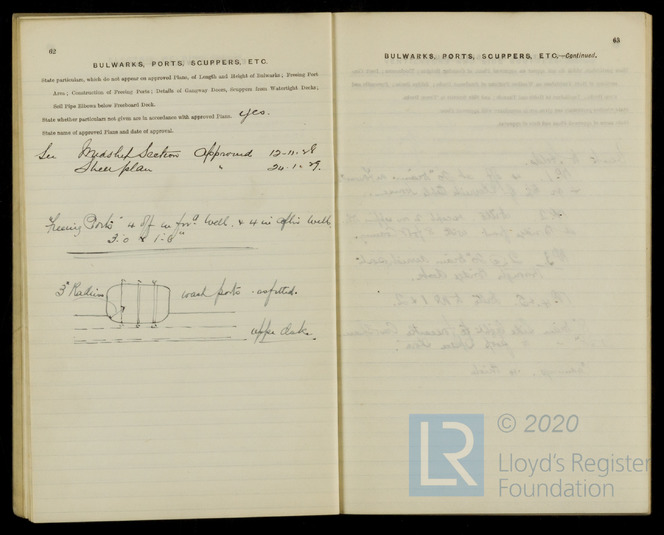 62
BULWARKS, PORTS, SCUPPERS, ETC.
State particulars, which do not appear on approved Plans, of Length and Height of Bulwarks; Freeing Port
Area; Construction of Freeing Ports; Details of Gangway Doors, Scuppers from Watertight Decks;
Soil Pipe Elbows below Freeboard Deck.
State whether particulars not given are in accordance with approved Plans. Yes.
State name of approved Plans and date of approval.
See Midship Section Approved 12-11-28
Sheer plan " 24-1-29.
Freeing Ports 4 off in ford Well, & 4 in after Well
3'.0 x 1'.6"
3" Radius wash ports as fitted.
upper deck.
63
BULWARKS, PORTS, SCUPPERS, ETC.—Continued.
LR
© 2020
Lloyd's Register
Foundation